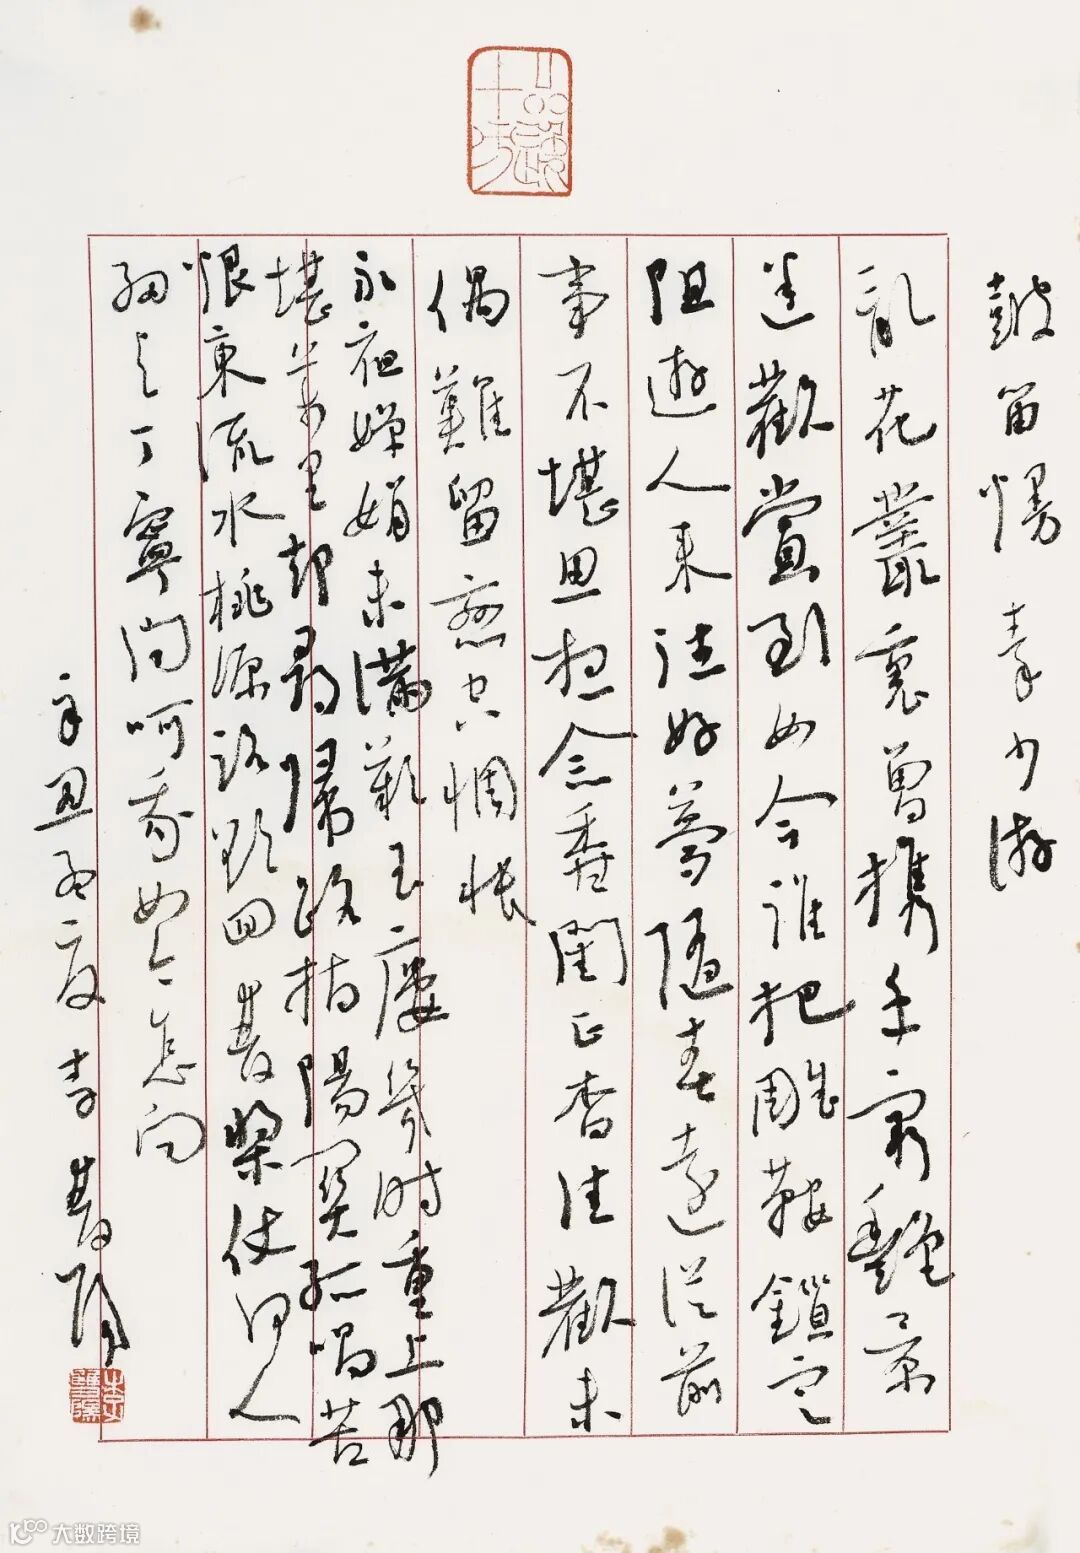 鼓笛慢 秦少游
亂花叢裏曾携手窮艷景
迷歡賞到如今誰把雕鞍鎖定
阻遊人来往好夢隨春遠從前
事不堪思想念香閨正杳佳歡未
偶難留戀空惆悵
永夜嬋娟未滿歎玉樓幾時重上那
堪萬里却尋歸路指陽關孤唱苦
恨東流水桃源路欲回雙槳仗何人
細与丁寧問呵我如今怎向
辛丑孟夏李雙陽
李雙陽
大数跨境